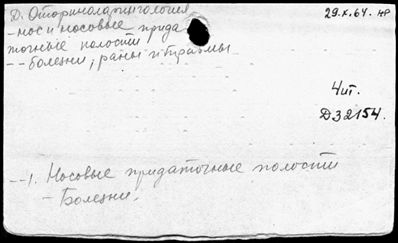 Д. Оториноларингология
29.X.64. НР
- нос и носовые прида
точные полости
-- болезни, раны и травмы
Чит.
Д32154.
--1. Носовые придаточные полости
- Болезни.